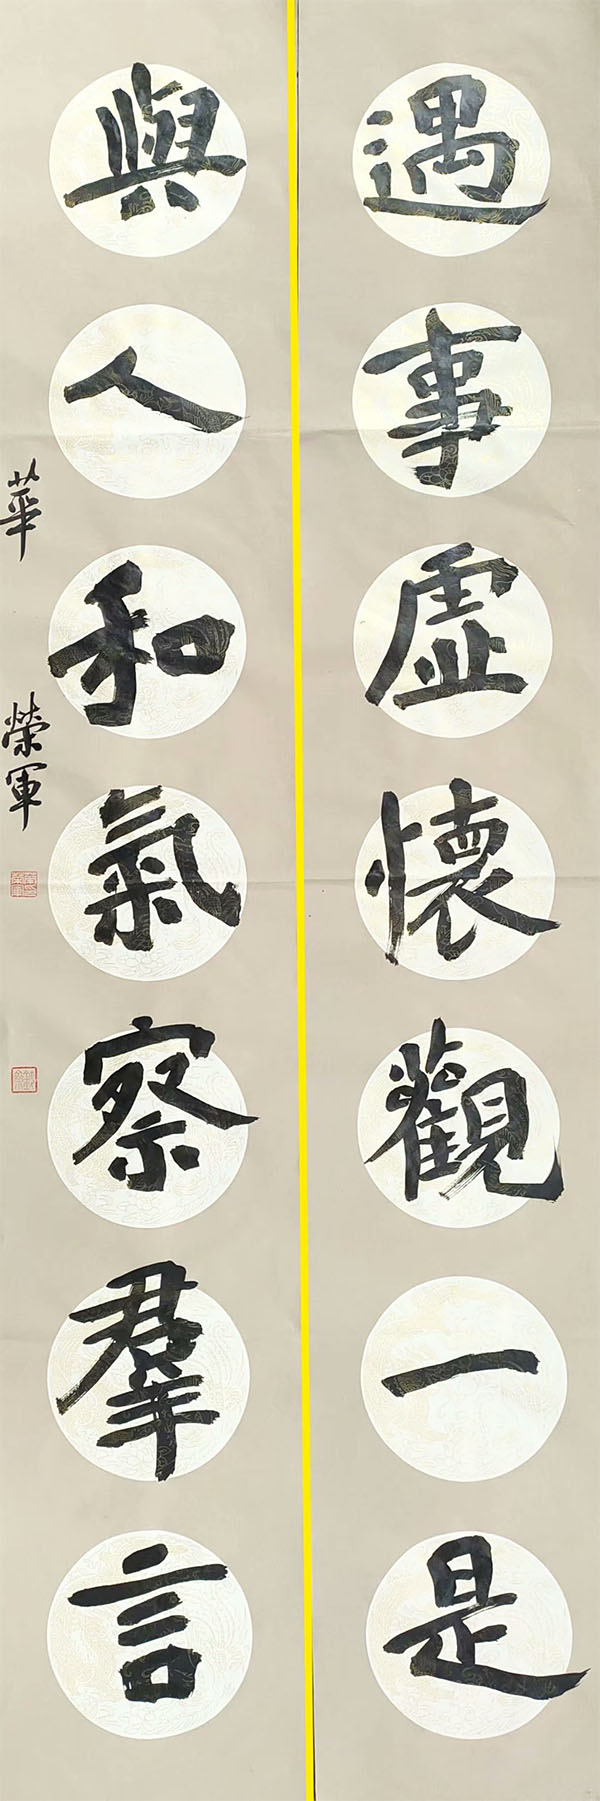 遇事虛懷觀一是
與人和氣察羣言
華榮軍